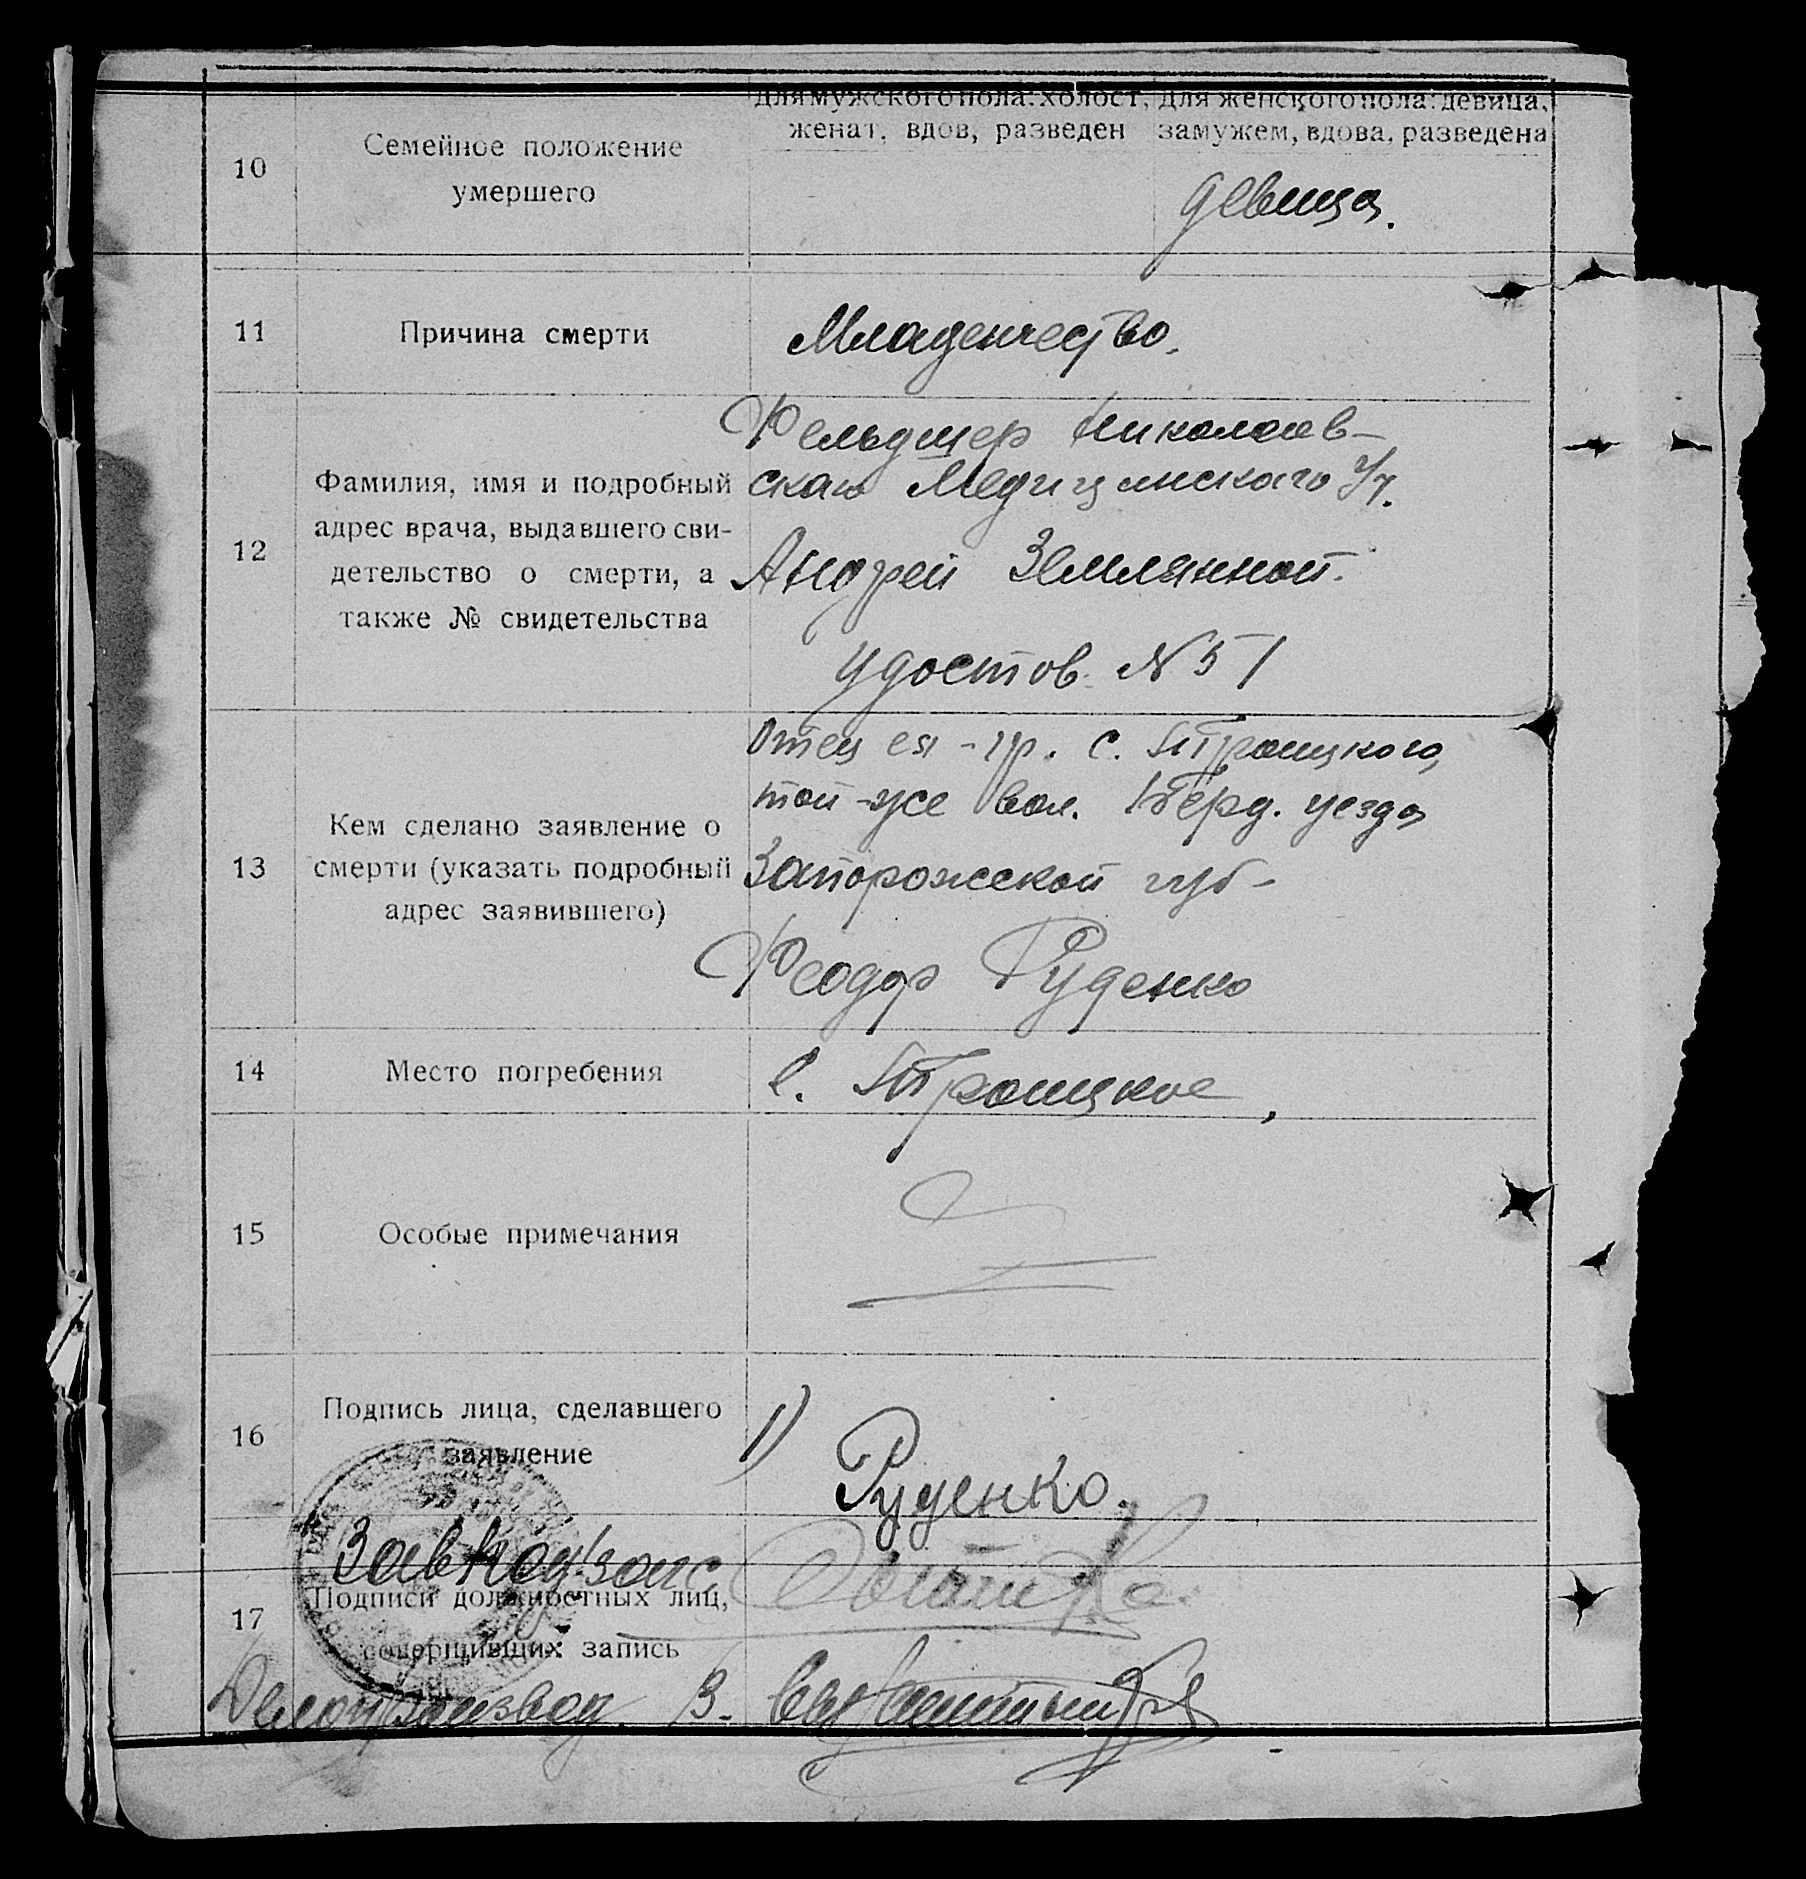 для мужского пола: холост, для женского пола: девица,
женат, вдов, разведен замужем, вдова, разведена
10 Семейное положение
умершего
девица.
11 Причина смерти Младенчество.
Фельдшер Николаев-
Фамилия, имя и подробный
скаго Медицинскаго Уч.
адрес врача, выдавшего сви-
12
детельство о смерти, а
Андрей Землянной.
также № свидетельства
удостов. N 51
Отец ея - гр. с. Троицкого,
той-же вол. Берд. уезда
Кем сделано заявление о
13 смерти (указать подробный
Запорожской губ-
адрес заявившего)
Феодор Руденко
14 Место погребения с. Троицкое,
15 Особые примечания
Подпись лица, сделавшего
16
1)
заявление
Руденко.
Завподзагс
17 Подписи должностных лиц,
совершивших запись
Делопроизвод. В.